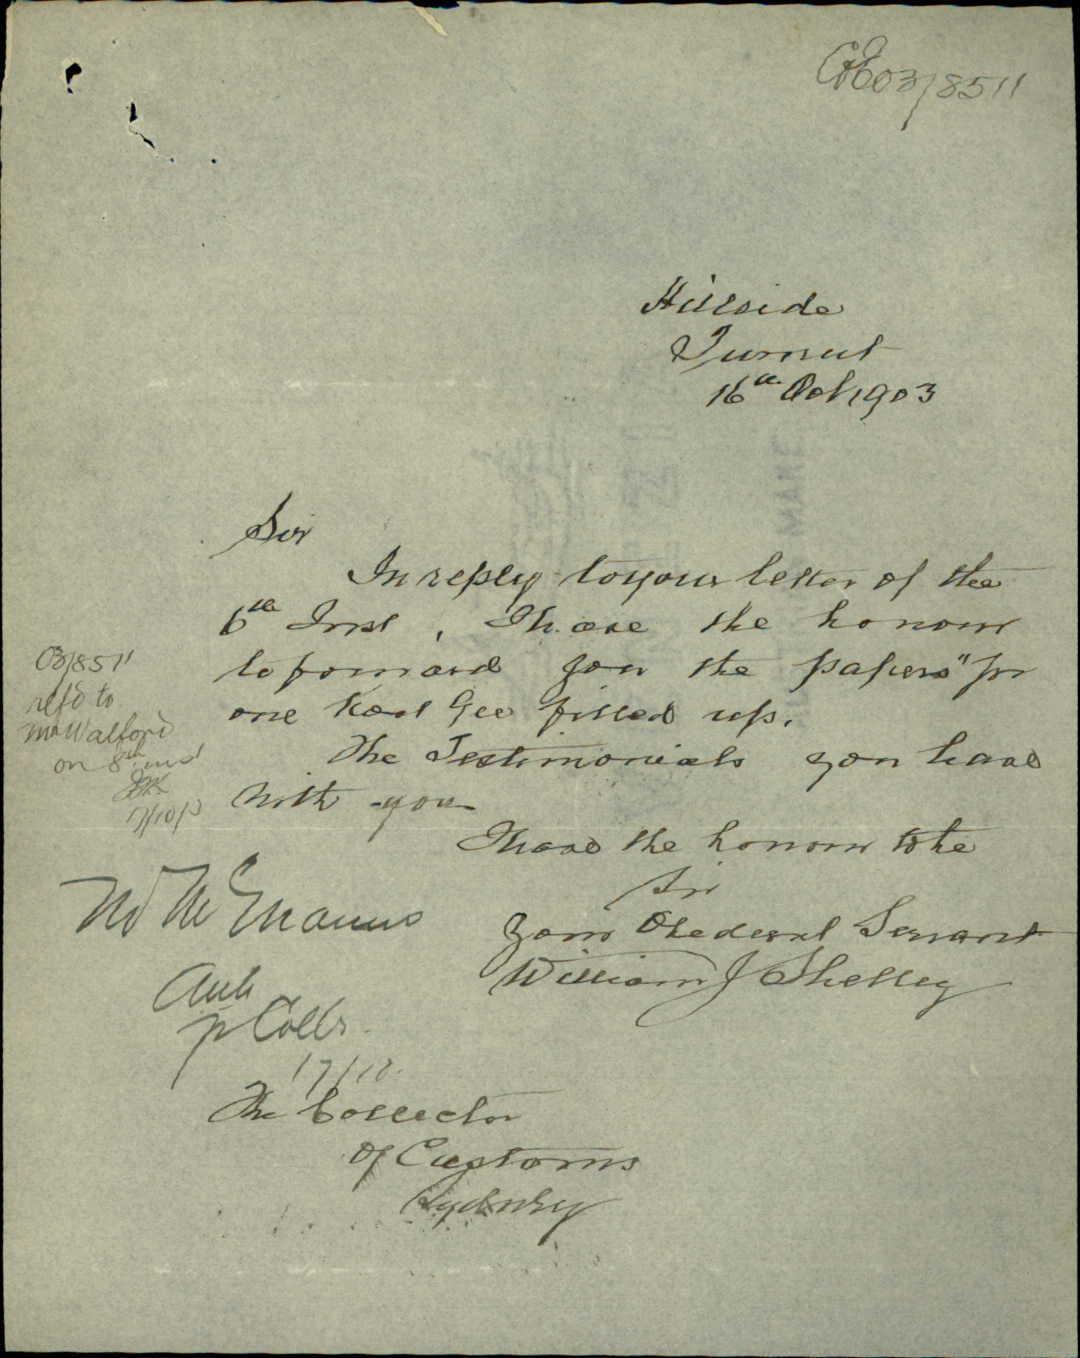 C03/8511
Hillside
Tumut
16th Oct 1903
Sir
In reply to your letter of the
6th Inst, I have the honour
to forward you the papers "for
one Kad Gee filled up.
The Testimonials you have
with you
I have the honour to be
Sir
Your Obedient Servant
William J Shelley
03/8511
refd to
Mr Walford
on 8th inst
17/10/3
Mr McManus
p Collr.
17/10.
The Collector
of Customs
Sydney